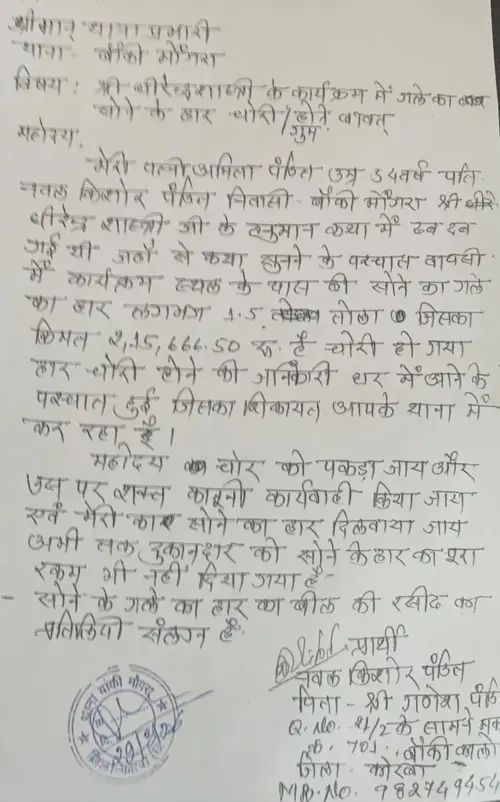 श्रीमान थाना प्रभारी
थाना - बाँकी मोंगरा
विषय : श्री धीरेन्द्र शास्त्री के कार्यक्रम में गले का
सोने के हार चोरी/गुम होने बावत्
महोदय,
मेरी पत्नी अमिता पंडित उम्र 54 वर्ष पति
नवल किशोर पंडित निवासी - बाँकी मोंगरा श्री धीरे-
धीरेन्द्र शास्त्री जी के हनुमान कथा में
गई थी जहाँ से कथा सुनने के पश्चात वापसी
में कार्यक्रम स्थल के पास की सोने का गले
का हार लगभग 1.5 तोला जिसका
किमत 2,15,666.50 रु. है चोरी हो गया
हार चोरी होने की जानकारी घर में आने के
पश्चात हुई जिसका शिकायत आपके थाना में
कर रहा हूँ ।
महोदय चोर को पकड़ा जाय और
उस पर शक्त कानूनी कार्यवाही किया जाय
एवं मेरी सोने का हार दिलवाया जाय
अभी तक दुकानदार को सोने के हार का पूरा
रकम भी नहीं दिया गया है -
- सोने के गले का हार का बील की रसीद का
प्रतिलिपी संलग्न है
प्रार्थी
नवल किशोर पंडित
पिता - श्री गणेश पंडि
Q. No. 21/2 के सामने
701, बाँकी कालो
जिला - कोरबा
Mb. No. 982749454
थाना बांकी मोंगरा